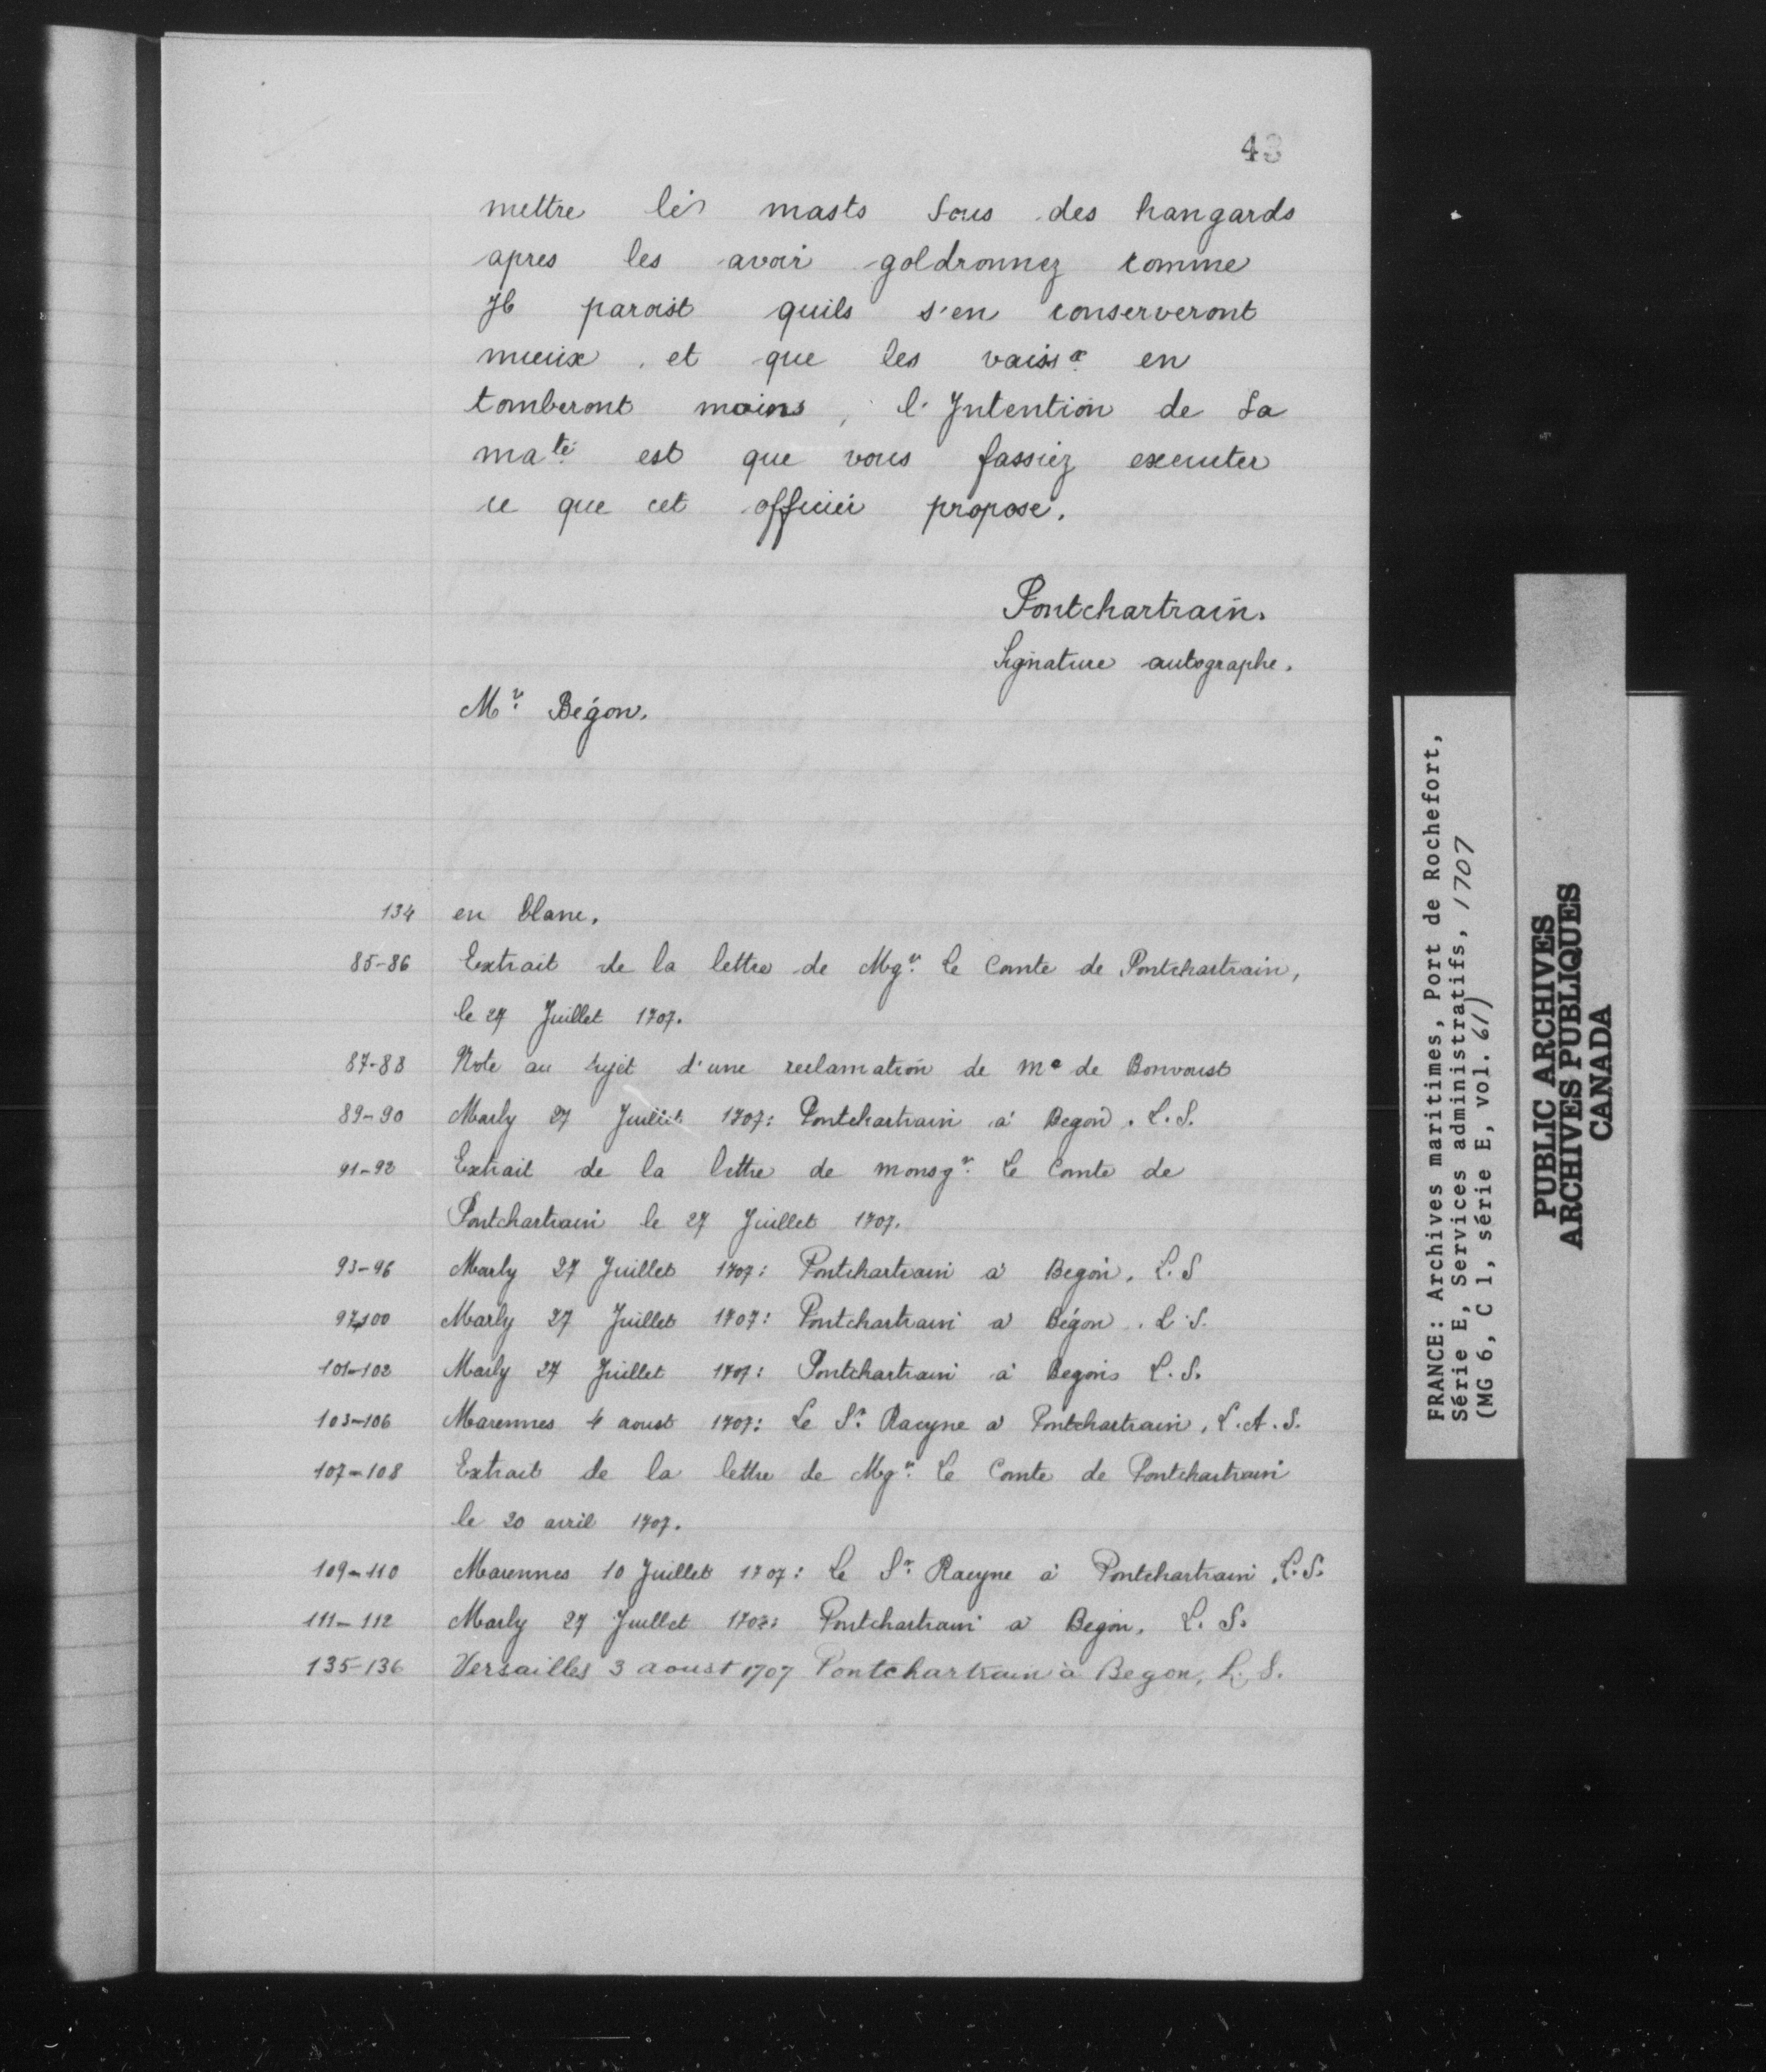 43
mettre les masts sous des hangards
apres les avoir goldronnez comme
Il paroist quils s'en conserveront
mieux, et que les vaissx en
tomberont moins, l'Intention de Sa
maté est que vous fassiez executer
ce que cet officier propose.
Pontchartrain.
Signature autographe.
Mr Bégon.
134 en blanc.
85-86 Extrait de la lettre de Mgr le Comte de Pontchartrain,
le 27 Juillet 1707.
87-88 Note au sujet d'une reclamation de Me de Bonvoust
89-90 Marly 27 Juillet 1707: Pontchartrain à Begon. L.S.
91-92 Extrait de la lettre de monsgr le Comte de
Pontchartrain le 27 Juillet 1707.
93-96 Marly 27 Juillet 1707: Pontchartrain à Begon. L.S
97-100 Marly 27 Juillet 1707: Pontchartrain à Bégon. L.S.
101-102 Marly 27 Juillet 1707: Pontchartrain à Begon L.S.
103-106 Marennes 4 aoust 1707: Le Sr Racyne à Pontchartrain, L.A.S.
107-108 Extrait de la lettre de Mgr le Comte de Pontchartrain
le 20 avril 1707.
109-110 Marennes 10 Juillet 1707: Le Sr Racyne à Pontchartrain, L.S.
111-112 Marly 27 Juillet 1707: Pontchartrain à Begon, L. S.
135-136 Versailles 3 aoust 1707 Pontchartrain à Begon, L. S.
FRANCE: Archives maritimes, Port de Rochefort,
Série E, Services administratifs, 1707
(MG 6, C 1, série E, vol. 61)
PUBLIC ARCHIVES
ARCHIVES PUBLIQUES
CANADA